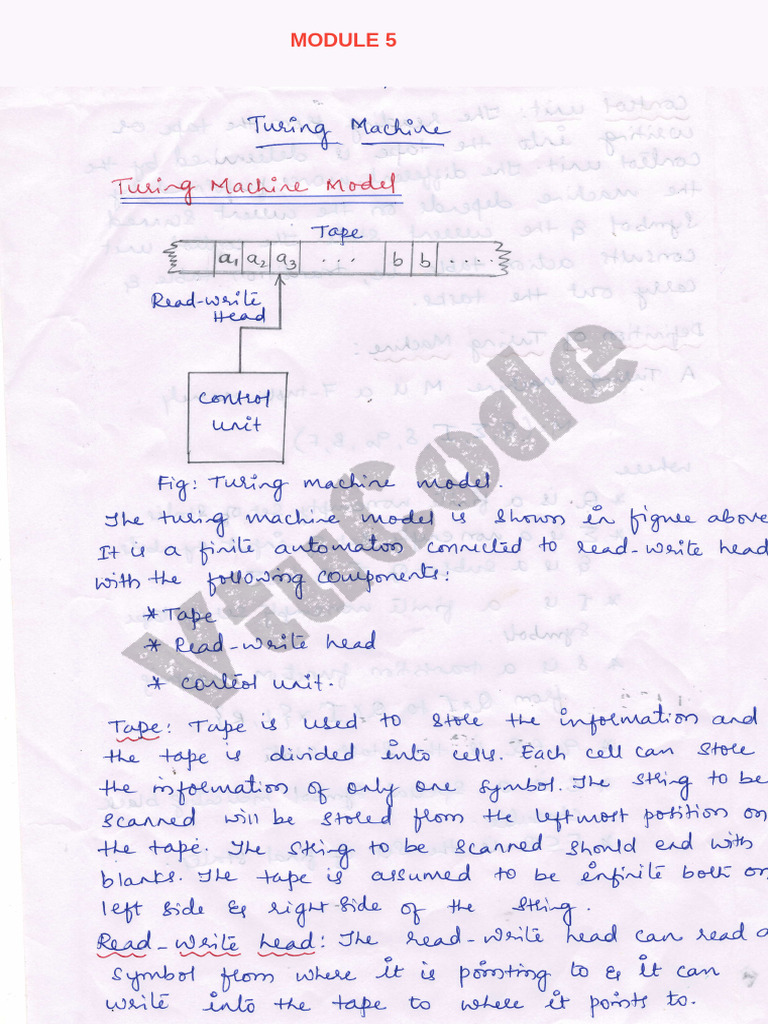 MODULE 5
Turing Machine
Turing Machine Model
Tape
a1 a2 a3 ... b b ....
Read-write
Head
control
unit
Fig: Turing machine model.
The turing machine model is shown in figure above
It is a finite automaton connected to read-write head
with the following components:
* Tape
* Read-write head
* control unit.
Tape: Tape is used to store the information and
the tape is divided into cells. Each cell can store
the information of only one symbol. The string to be
scanned will be stored from the leftmost position on
the tape. The string to be scanned should end with
blanks. The tape is assumed to be infinite both on
left side & right side of the string.
Read-write head: The read-write head can read a
symbol from where it is pointing to & it can
write into the tape to where it points to.
VTUCode